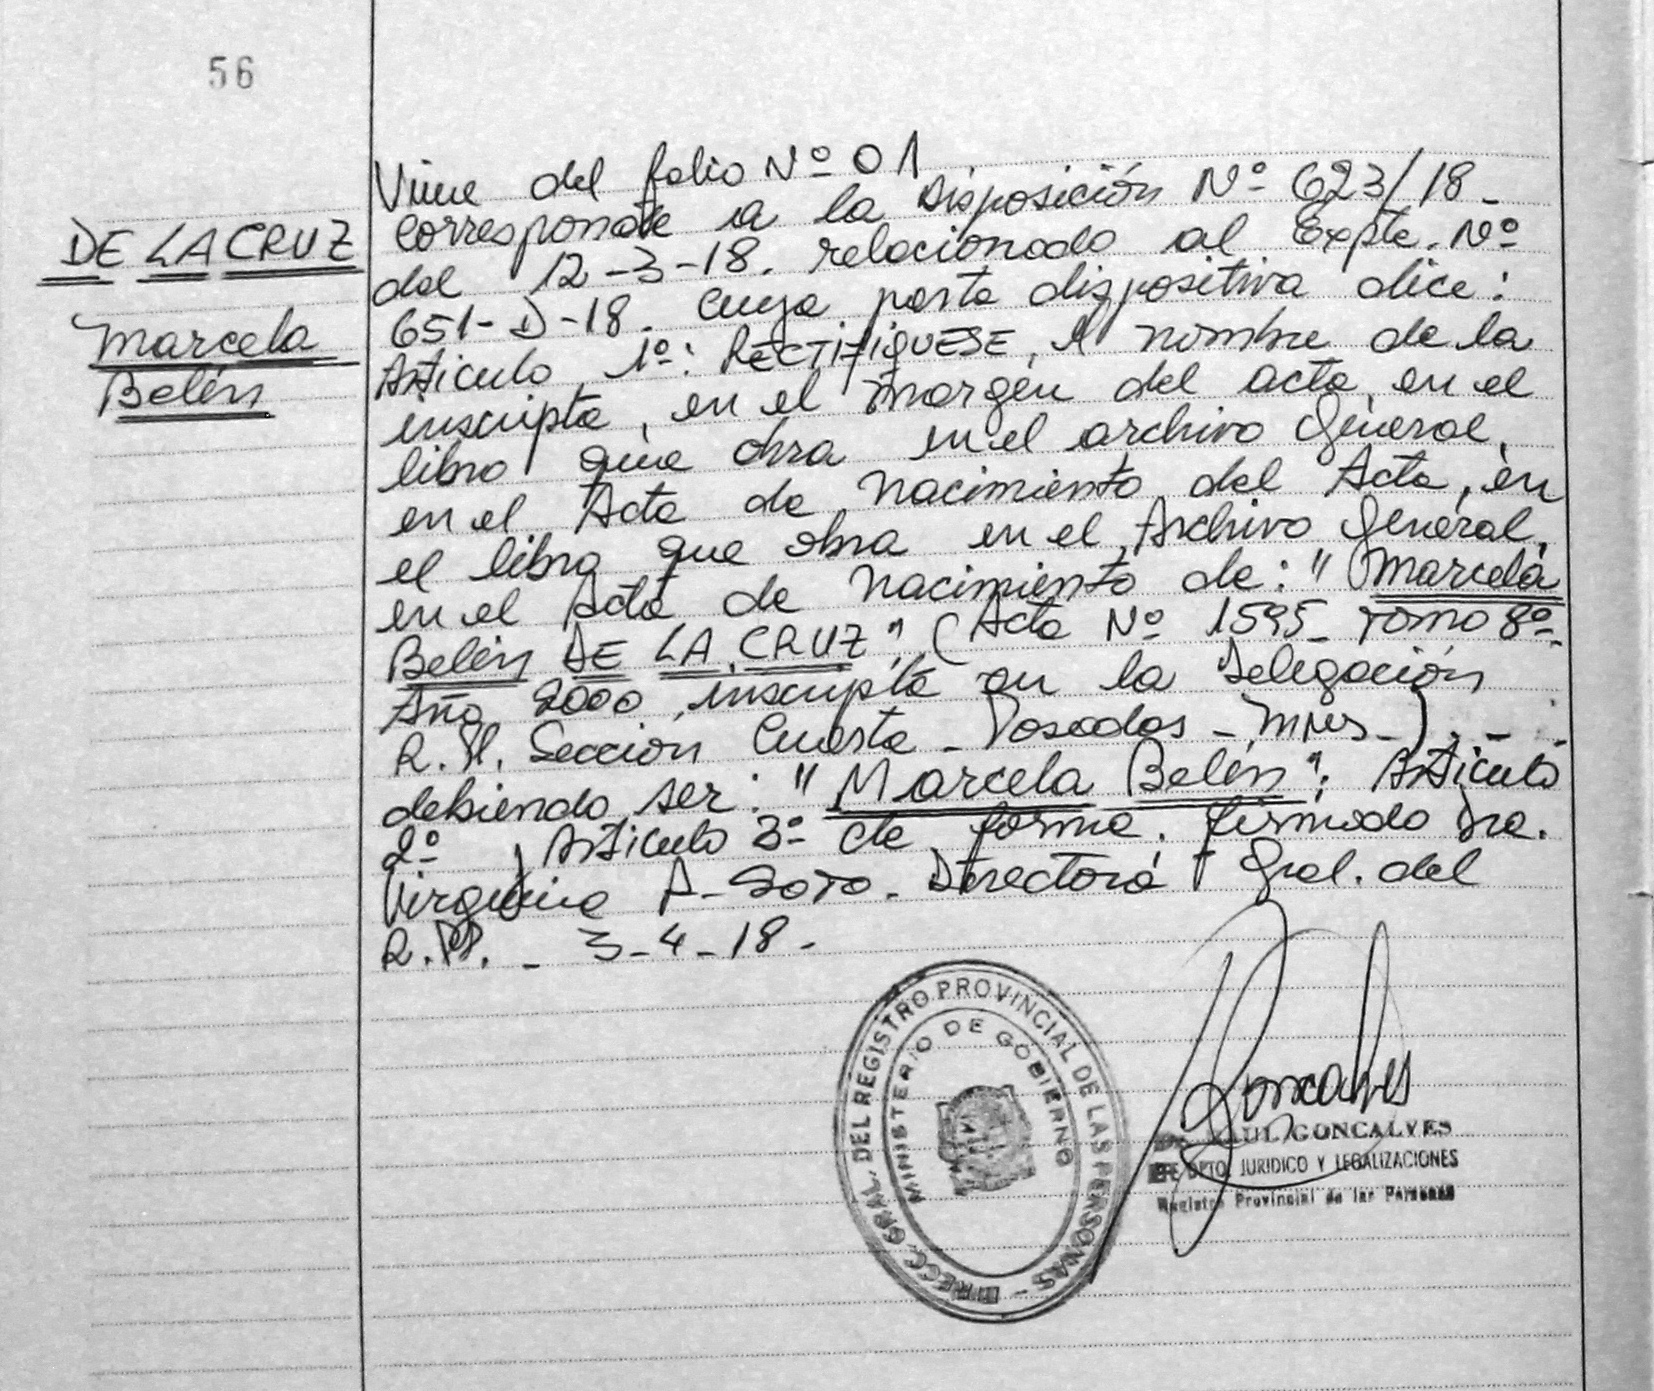 56
DE LA CRUZ
Marcela
Belén
Viene del folio Nº 01
corresponde a la Disposición Nº 623/18 -
del 12-3-18. relacionado al Expte. Nº
651-D-18. cuya parte dispositiva dice:
Articulo 1º: RECTIFIQUESE, el nombre de la
inscripta, en el margen del acta, en el
libro que obra en el archivo General,
en el Acta de nacimiento del Acta, en
el libro que obra en el Archivo General,
en el Acta de nacimiento de: "Marcela
Belén DE LA CRUZ", (Acta Nº 1595- Tomo 8º-
Año 2000, inscripta en la Delegación
R.P. Sección Cuarta - Posadas - Mnes-). -
debiendo ser: "Marcela Belén". Articulo
2º, Articulo 3º de forma. firmado Dra.
Virginia A- SOTO. Directora Gral. del
R.P. - 3-4-18-
DIRECC. GRAL. DEL REGISTRO PROVINCIAL DE LAS PERSONAS -
MINISTERIO DE GOBIERNO
Goncalves
GONCALVES
DPTO. JURIDICO Y LEGALIZACIONES
Registro Provincial de las Personas